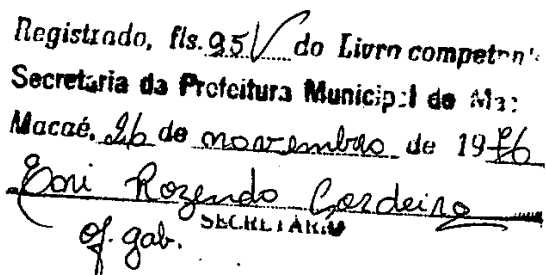 Registrado, fls. 95V do Livro competen
Secretaria da Prefeitura Municipal de Ma
Macaé, 26 de novembro de 1976
Eoni Rozendo Cordeiro
SECRETÁRIO
of. gab.